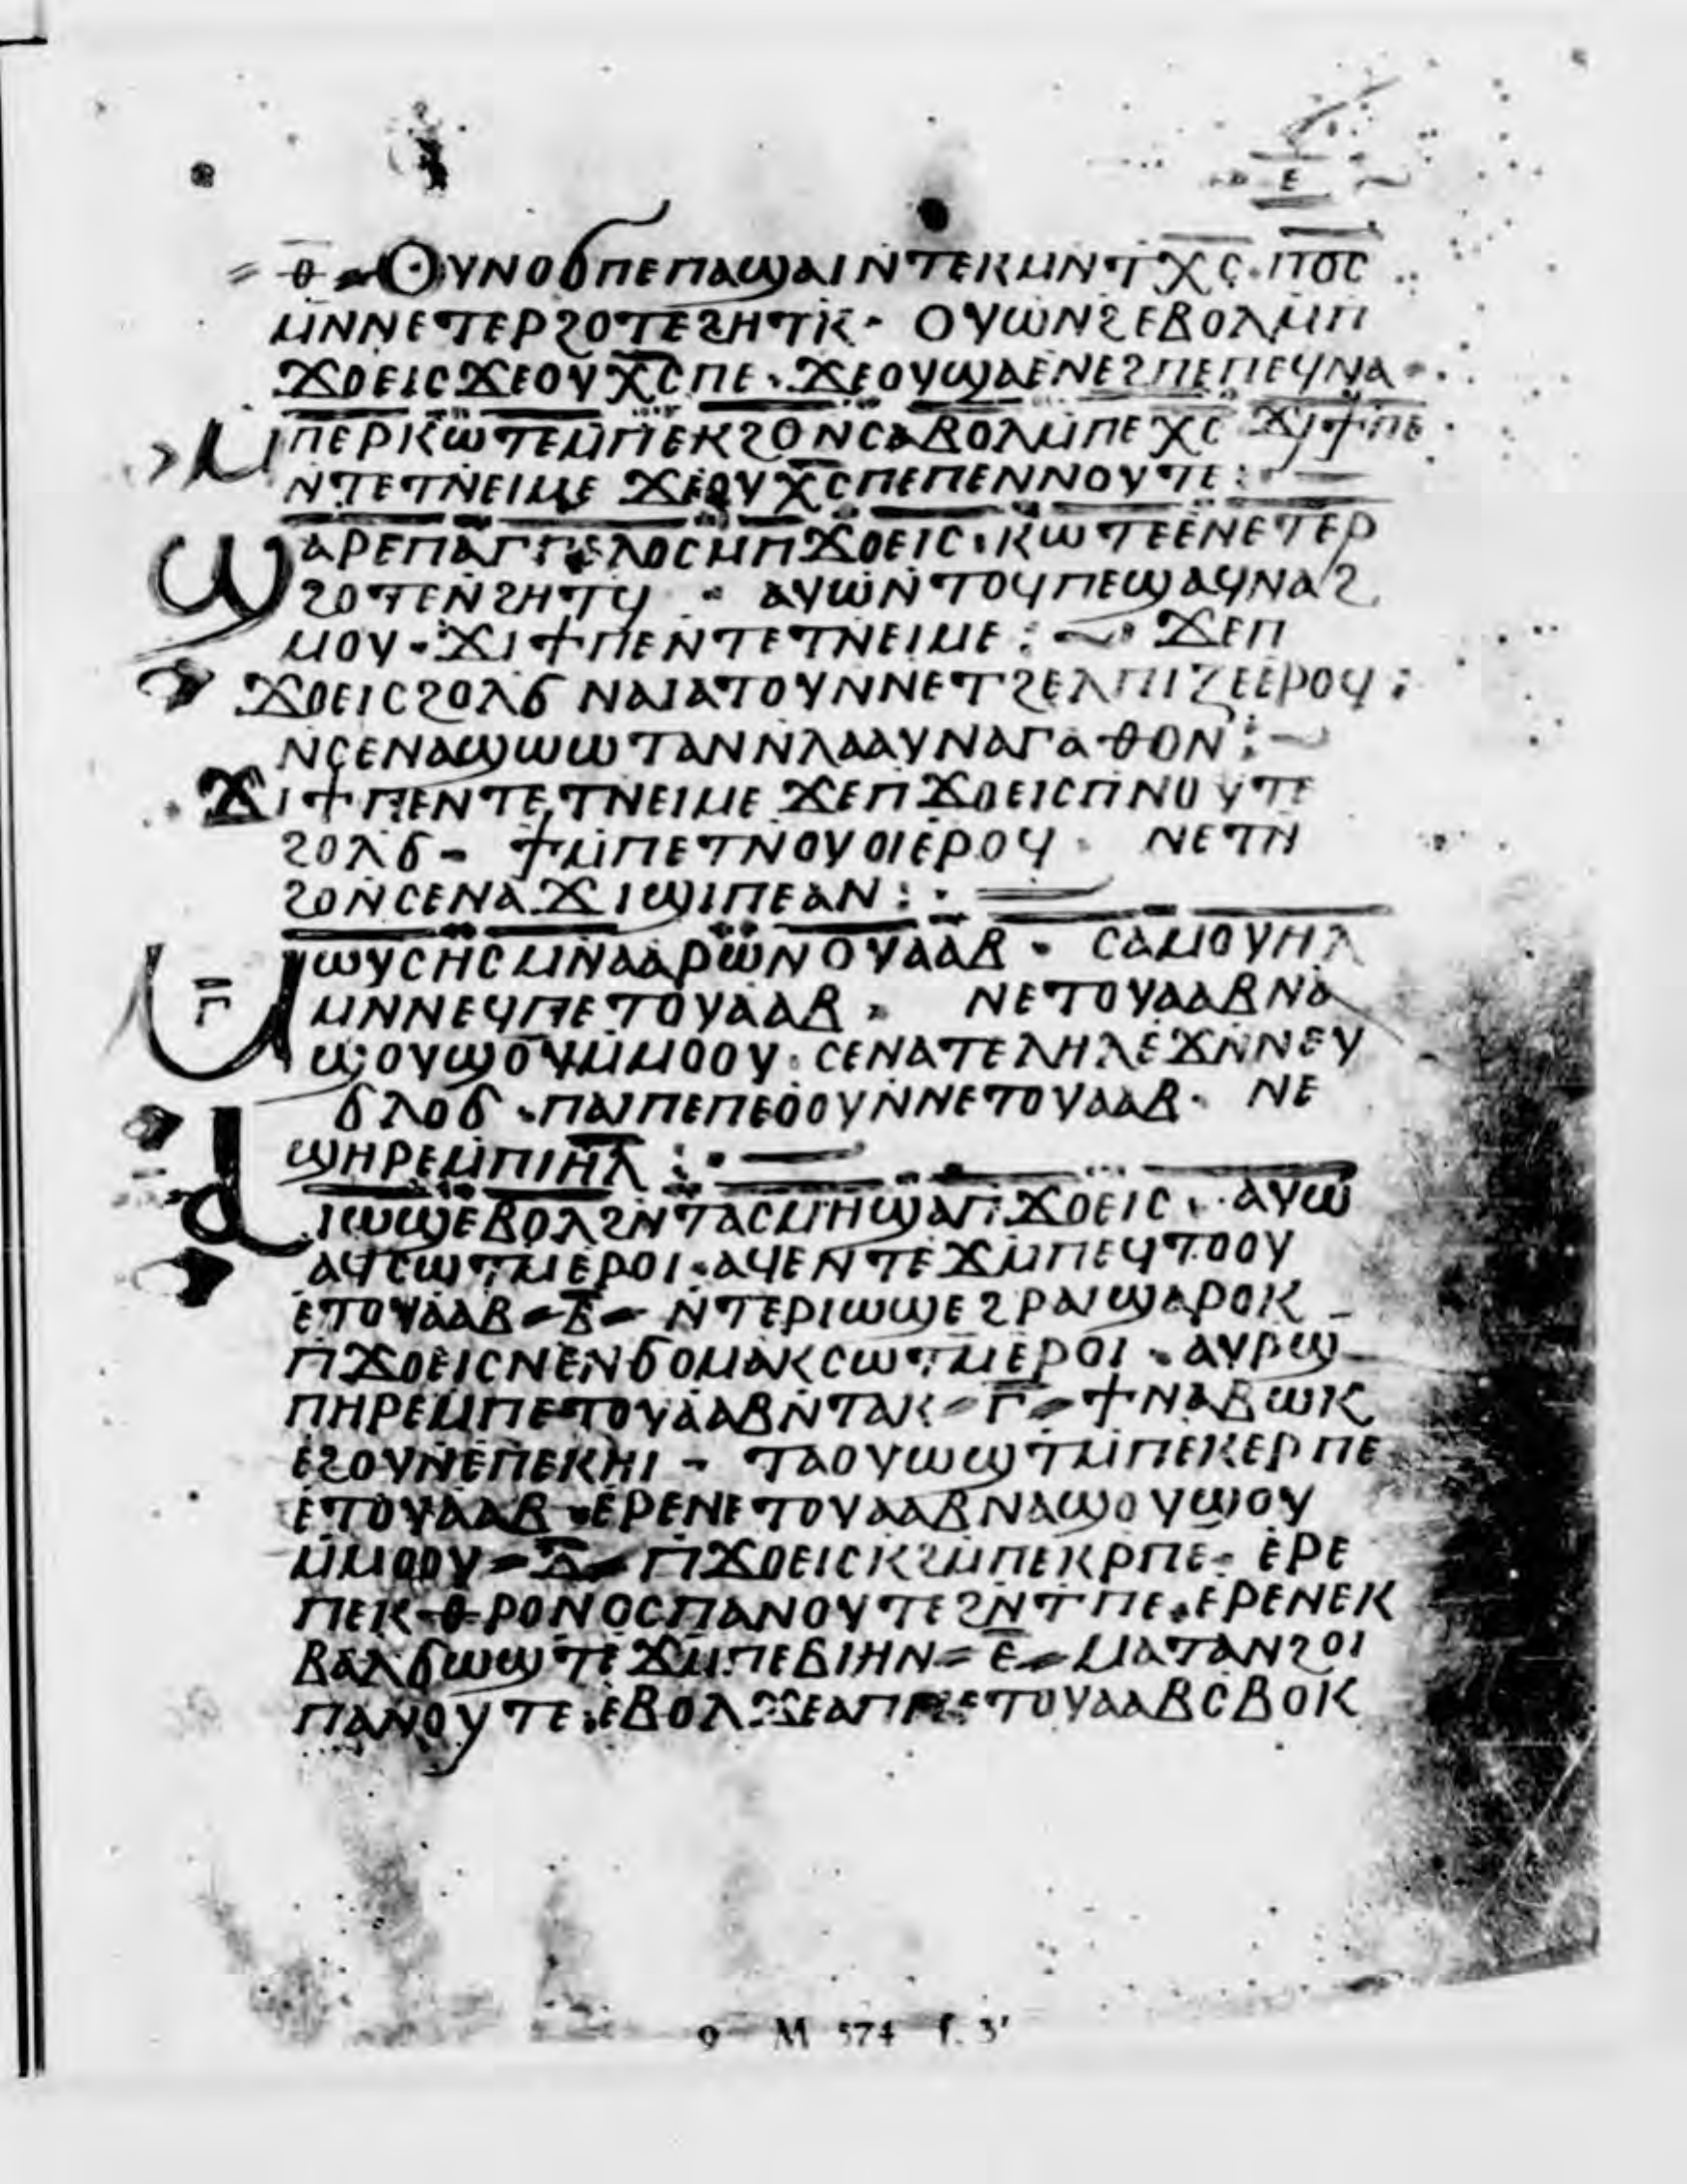 Ⲉ
ⲑ ⲞⲨⲚⲟϭⲡⲉⲡⲁϣⲁⲓⲛⲧⲉⲕⲙⲛⲧⲭ̅ⲥ̅·ⲡϭ̅ⲥ̅
ⲙⲛⲛⲉⲧⲉⲣϩⲟⲧⲉϩⲏⲧⲕ· ⲟⲩⲱⲛϩⲉⲃⲟⲗⲙⲡ
ϫⲟⲉⲓⲥϫⲉⲟⲩⲭ̅ⲥ̅ⲡⲉ· ϫⲉⲟⲩϣⲁⲉⲛⲉϩⲡⲉⲡⲉϥⲛⲁ·
Ⲙⲡⲉⲣⲕⲱⲧⲉⲙⲡⲉⲕϩⲟⲛⲥⲁⲃⲟⲗⲙⲡⲉⲭ̅ⲥ̅ ϫⲓϯⲡⲉ
ⲛⲧⲉⲧⲛⲉⲓⲙⲉ ϫⲉⲟⲩⲭ̅ⲥ̅ⲡⲉⲡⲉⲛⲛⲟⲩⲧⲉ:
Ϣⲁⲣⲉⲡⲁⲅⲅⲉⲗⲟⲥⲙⲡϫⲟⲉⲓⲥ·ⲕⲱⲧⲉⲉⲛⲉⲧⲉⲣ
ϩⲟⲧⲉⲛϩⲏⲧϥ · ⲁⲩⲱⲛⲧⲟϥⲡⲉϣⲁϥⲛⲁϩ
ⲙⲟⲩ·ϫⲓϯⲡⲉⲛⲧⲉⲧⲛⲉⲓⲙⲉ: ϫⲉⲡ
ϫⲟⲉⲓⲥϩⲟⲗϭ ⲛⲁⲓⲁⲧⲟⲩⲛⲛⲉⲧϩⲉⲗⲡⲓⲍⲉⲉⲣⲟϥ:
ⲛⲥⲉⲛⲁϣⲱⲱⲧⲁⲛⲛⲗⲁⲁⲩⲛⲁⲅⲁⲑⲟⲛ:
Ϫⲓϯⲡⲉⲛⲧⲉⲧⲛⲉⲓⲙⲉ ϫⲉⲡϫⲟⲉⲓⲥⲡⲛⲟⲩⲧⲉ
ϩⲟⲗϭ- ϯⲙⲡⲉⲧⲛⲟⲩⲟⲓⲉⲣⲟϥ· ⲛⲉⲧⲛ
ϩⲟⲛⲥⲉⲛⲁϫⲓϣⲓⲡⲉⲁⲛ:
Ⲅ̅ Ⲙⲱⲩⲥⲏⲥⲙⲛⲁⲁⲣⲱⲛⲟⲩⲁⲁⲃ · ⲥⲁⲙⲟⲩⲏⲗ
ⲙⲛⲛⲉϥⲡⲉⲧⲟⲩⲁⲁⲃ· ⲛⲉⲧⲟⲩⲁⲁⲃⲛⲁ
ϣⲟⲩϣⲟⲩⲙⲙⲟⲟⲩ·ⲥⲉⲛⲁⲧⲉⲗⲏⲗⲉϫⲛⲛⲉⲩ
ϭⲗⲟϭ·ⲡⲁⲓⲡⲉⲡⲉⲟⲟⲩⲛⲛⲉⲧⲟⲩⲁⲁⲃ· ⲛⲉ
ϣⲏⲣⲉⲙⲡⲓ̅ⲏ̅ⲗ̅:
Ⲁⲓⲱϣⲉⲃⲟⲗϩⲛⲧⲁⲥⲙⲏϣⲁⲡϫⲟⲉⲓⲥ· ⲁⲩⲱ
ⲁϥⲥⲱⲧⲙⲉⲣⲟⲓ·ⲁϥⲉⲛⲧⲉϫⲙⲡⲉϥⲧⲟⲟⲩ
ⲉⲧⲟⲩⲁⲁⲃ-ⲃ̅- ⲛⲧⲉⲣⲓⲱϣⲉϩⲣⲁⲓϣⲁⲣⲟⲕ
ⲡϫⲟⲉⲓⲥⲛⲉⲛϭⲟⲙⲁⲕⲥⲱⲧⲙⲉⲣⲟⲓ·ⲁⲩⲣϣ
ⲡⲏⲣⲉⲙⲡⲉⲧⲟⲩⲁⲁⲃⲛⲧⲁⲕ-ⲅ̅-ϯⲛⲁⲃⲱⲕ
ⲉϩⲟⲩⲛⲉⲡⲉⲕⲏⲓ - ⲧⲁⲟⲩⲱϣⲧⲙⲡⲉⲕⲉⲣⲡⲉ
ⲉⲧⲟⲩⲁⲁⲃ·ⲉⲣⲉⲛⲉⲧⲟⲩⲁⲁⲃⲛⲁϣⲟⲩϣⲟⲩ
ⲙⲙⲟⲟⲩ-ⲇ̅-ⲡϫⲟⲉⲓⲥⲕϩⲙⲡⲉⲕⲣⲡⲉ· ⲉⲣⲉ
ⲡⲉⲕⲑⲣⲟⲛⲟⲥⲡⲁⲛⲟⲩⲧⲉϩⲛⲧⲡⲉ·ⲉⲣⲉⲛⲉⲕ
ⲃⲁⲗϭⲱϣⲧⲉϫⲙⲡⲉⲃⲓⲏⲛ-ⲉ̅-ⲙⲁⲧⲁⲛϩⲟⲓ
ⲡⲁⲛⲟⲩⲧⲉ·ⲉⲃⲟⲗϫⲉⲁⲡⲡⲉⲧⲟⲩⲁⲁⲃⲥⲃⲟⲕ
9 M 574 f. 3ʳ